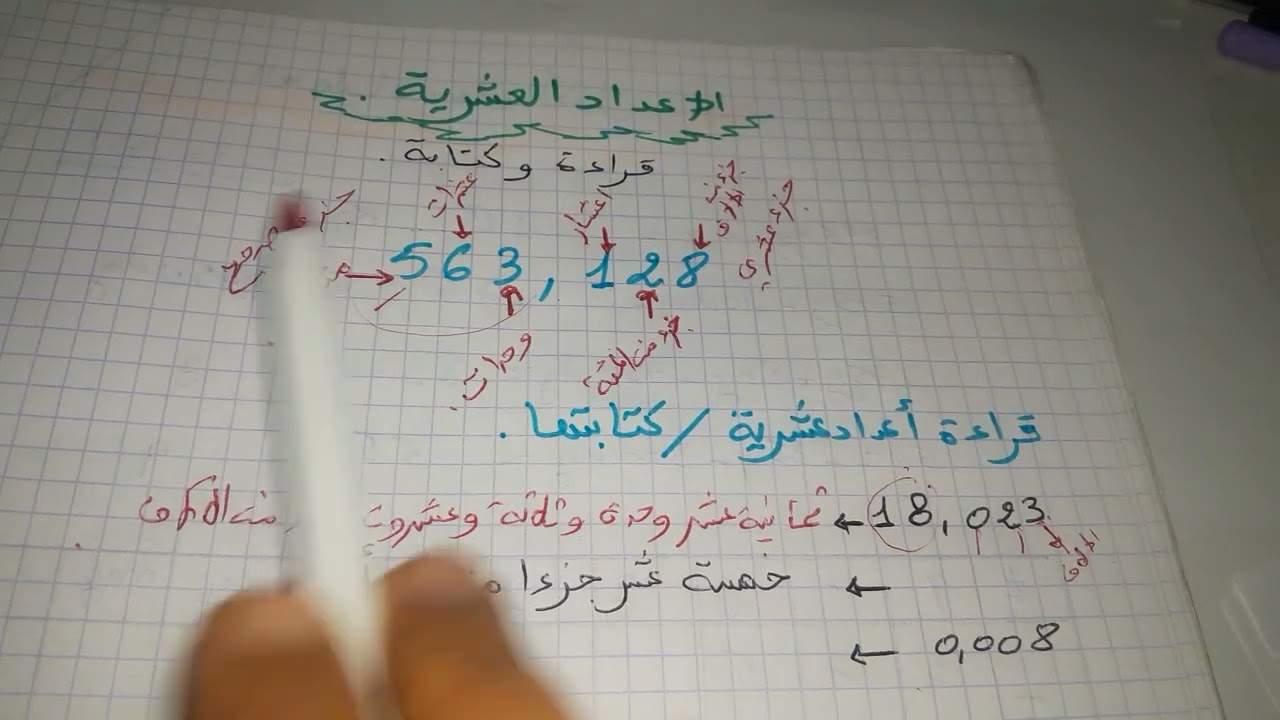 الأعداد العشرية .
قراءة وكتابة .
عشرات
أعشار
جزء عشري
563,128
وحدات
جزء من المئة
قراءة أعداد عشرية / كتابتها .
18,023 ← ثمانية عشر وحدة وثلاثة وعشرون من الألف .
← خمسة عشر جزءا
0,008 ←